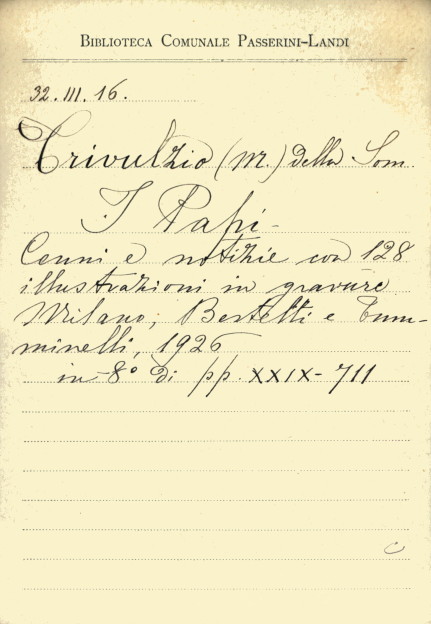 BIBLIOTECA COMUNALE PASSERINI-LANDI
32. III. 16.
Trivulzio (M.) della Som.
I Papi -
Cenni e notizie con 128
illustrazioni in gravure
Milano, Bestetti e Tum-
minelli, 1926
in-8° di pp. XXIX-711
C